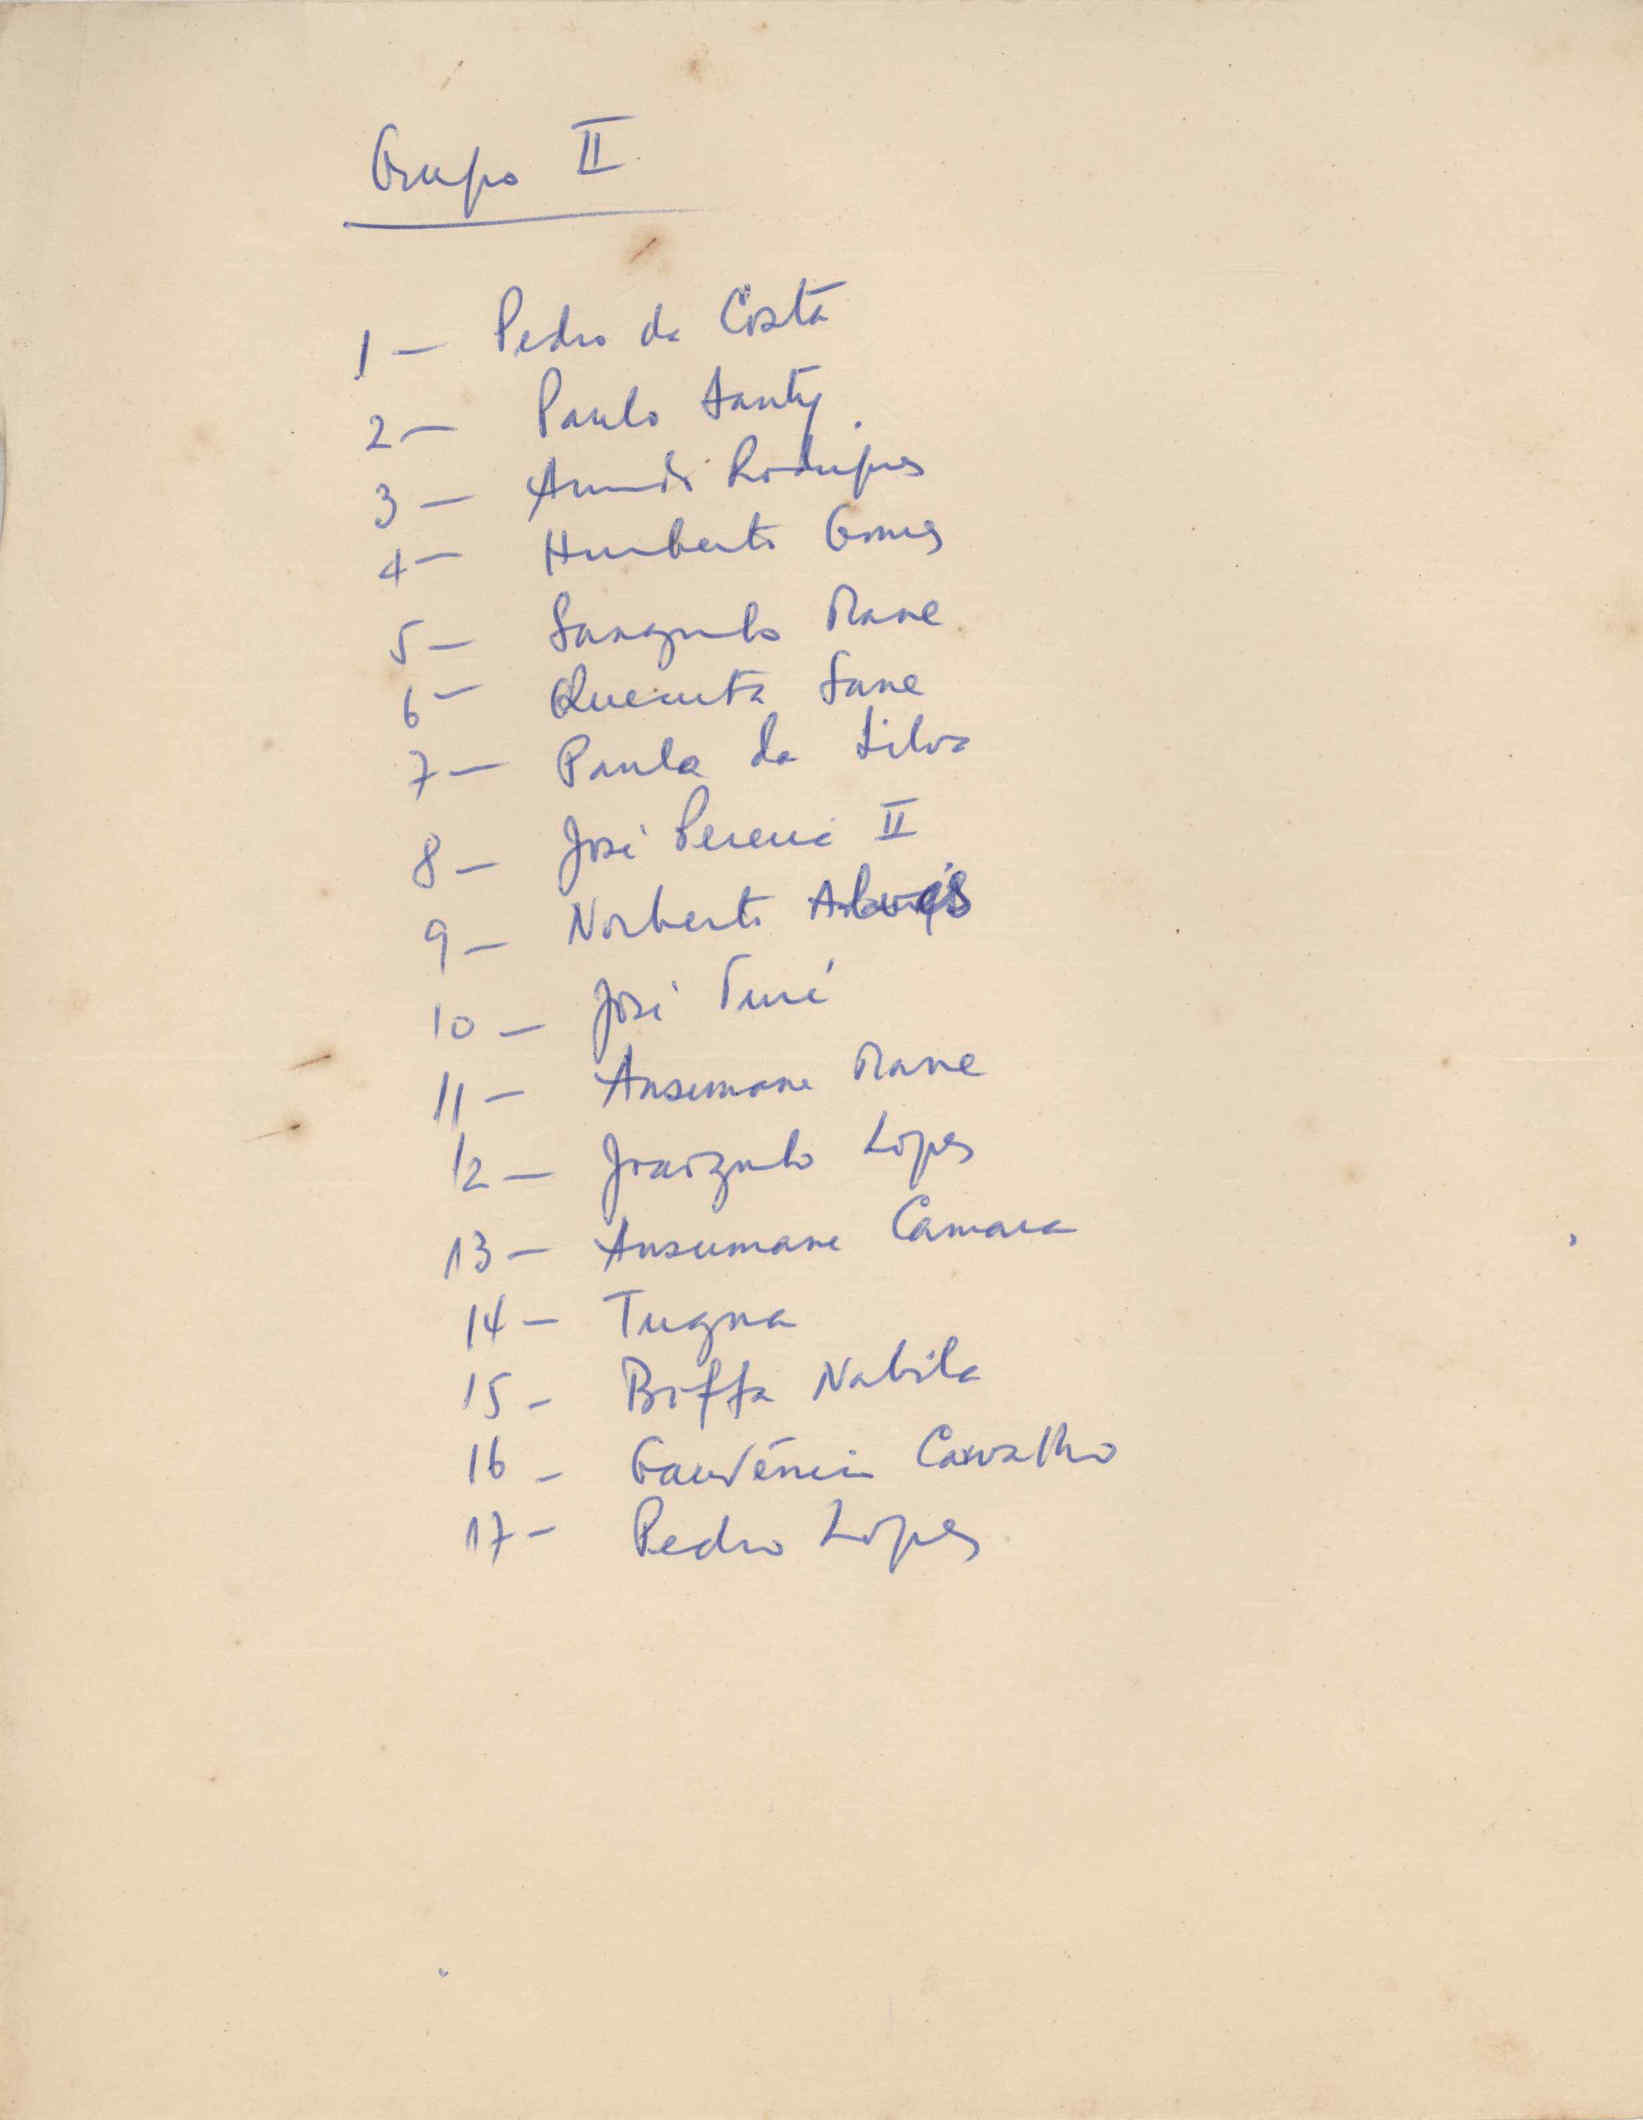 Grupo II
1 — Pedro da Costa
2 — Paulo Santy
3 — Armando Rodrigues
4 — Humberto Gomes
5 — Mane
6 — Quecuta Sane
7 — Paula da Silva
8 — José Pereira II
9 — Norberto Alves
10 — José Turé
11 — Ansumane Mane
12 — Joãozinho Lopes
13 — Ansumane Camara
14 — Tugna
15 — Boffa Nabila
16 — Gaudêncio Carvalho
17 — Pedro Lopes